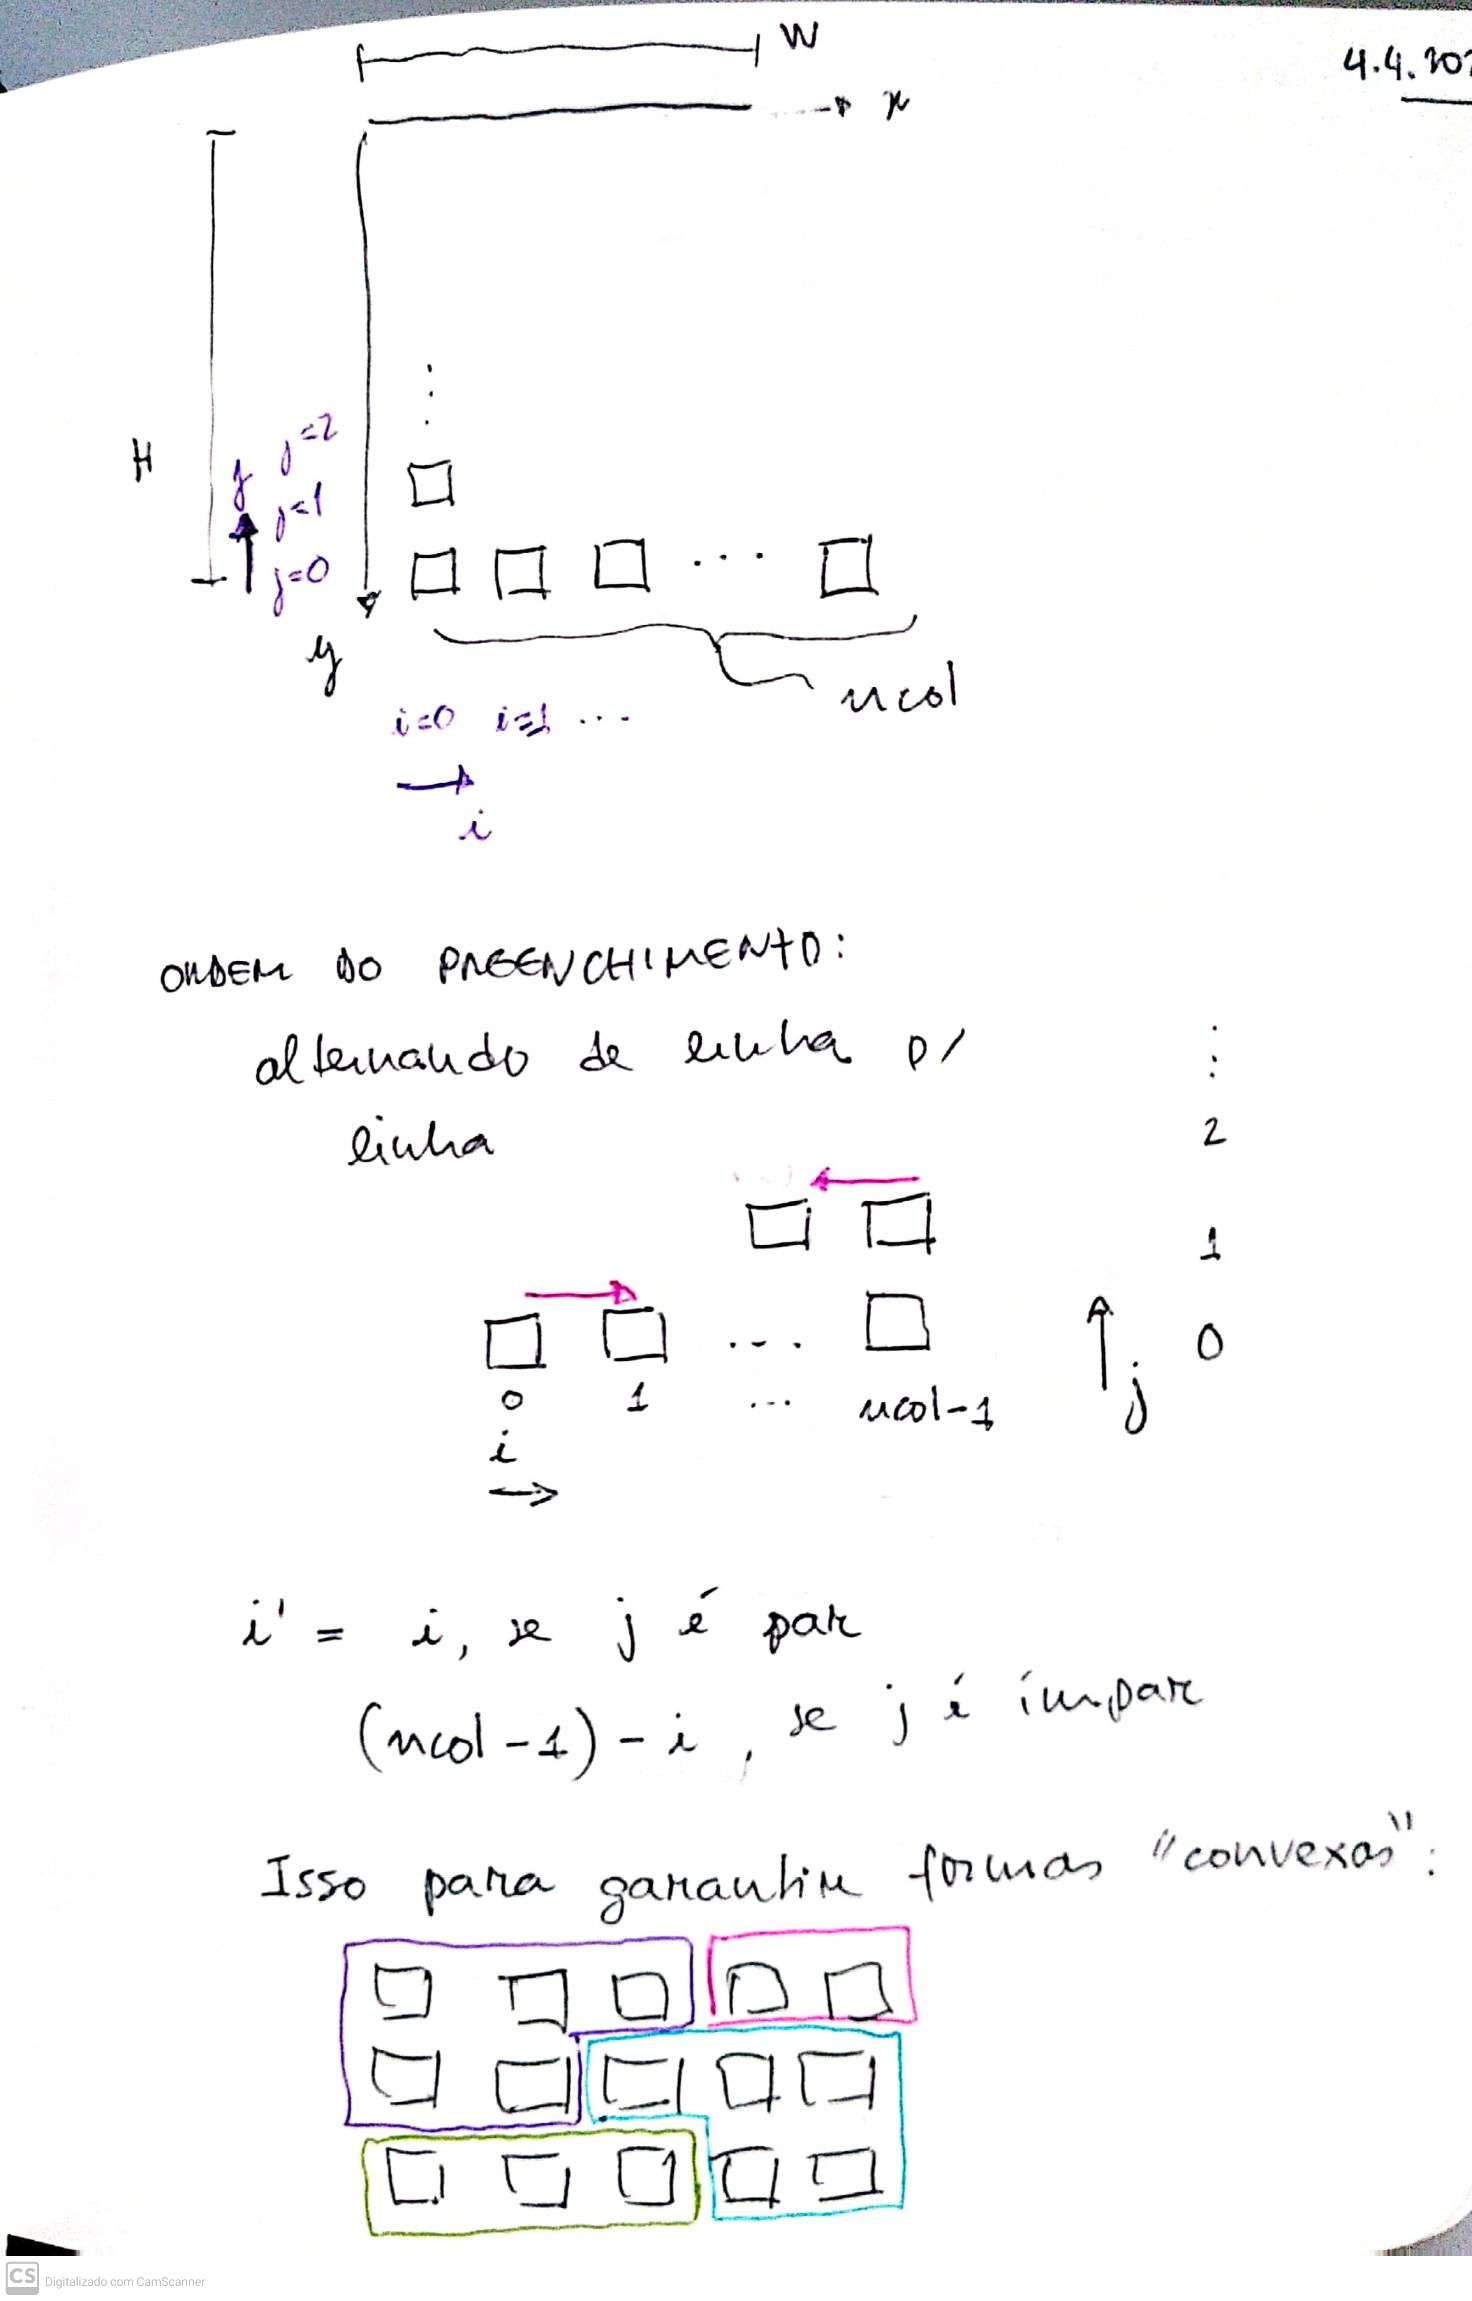 W
4.4.202
x
H
j=2
j
j=1
j=0
y
ncol
i=0 i=1 ...
i
ORDEM DO PREENCHIMENTO:
alternando de linha p/
linha
2
1
0
0 1 ... ncol-1
j
i
i' = i, se j é par
(ncol-1) - i, se j é ímpar
Isso para garantir formas "convexas":
CS Digitalizado com CamScanner